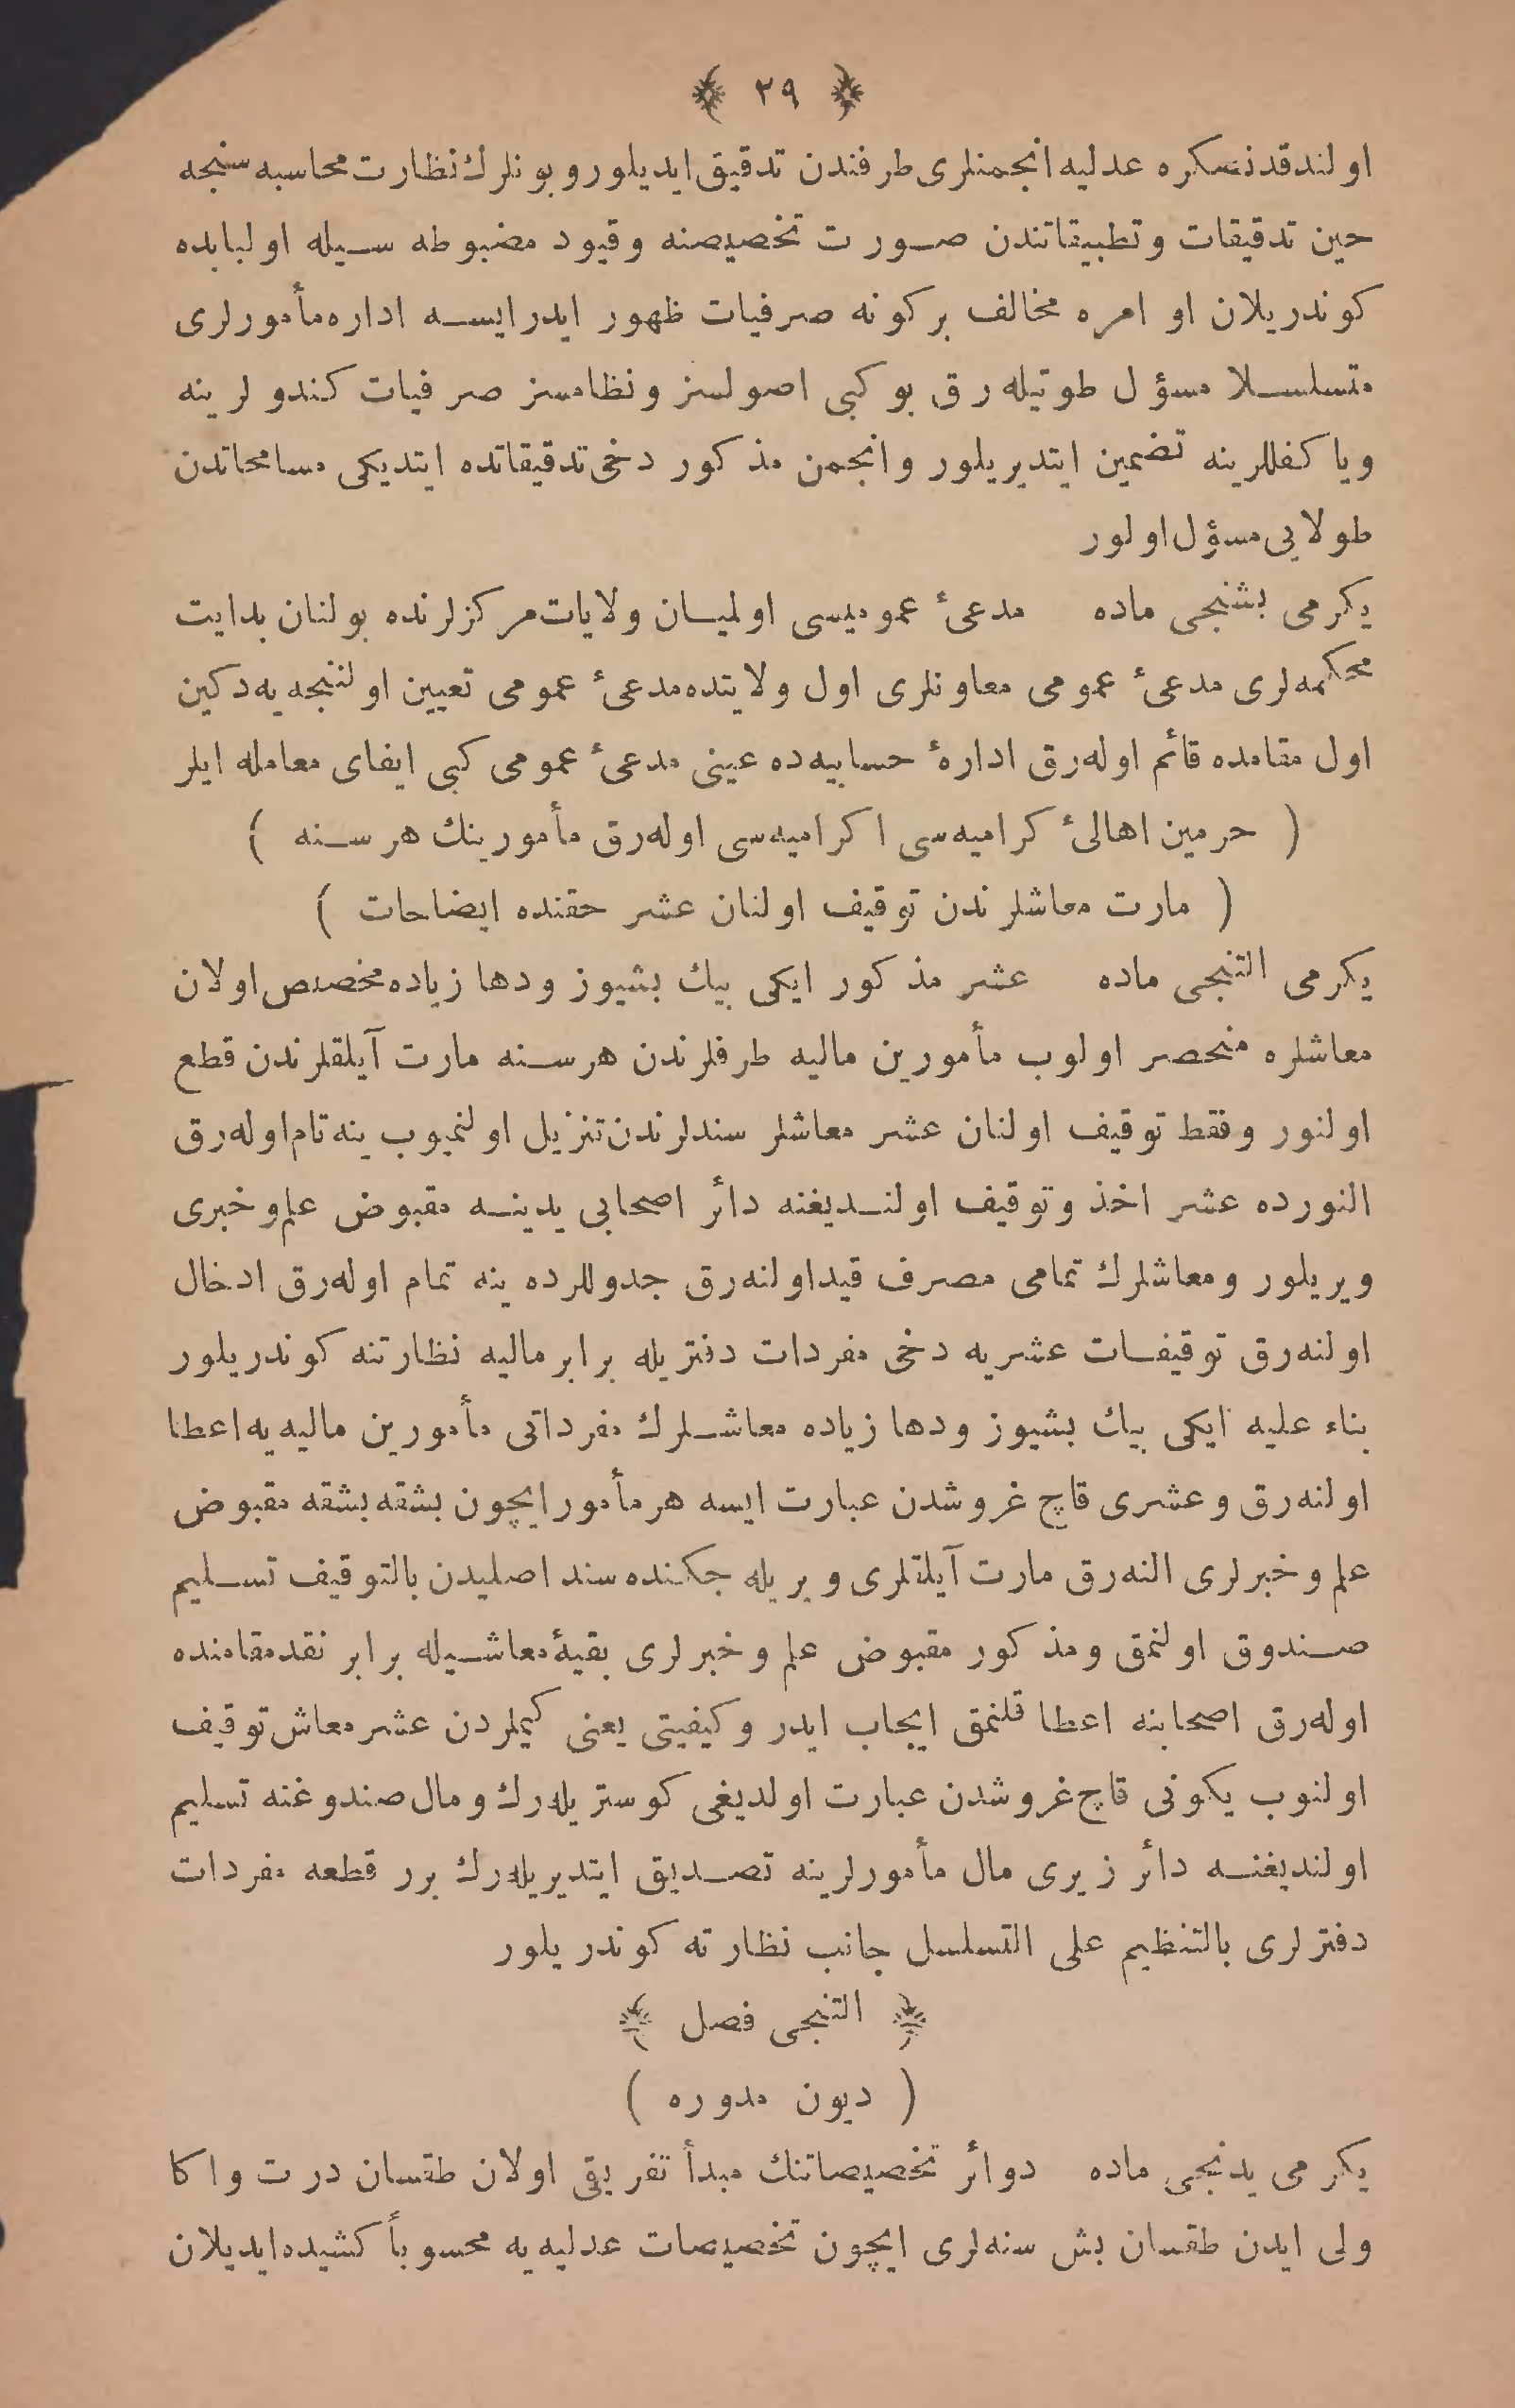 ٢٩
اولندقدنسكره عدليه انجمنلرى طرفندن تدقيق ايديلور و بونلرك نظارت محاسبه سنجه
حين تدقيقات و تطبيقاتندن صورت تخصيصنه و قيود مضبوطه سيله اولبابده
كوندريلان اوامره مخالف بركونه صرفيات ظهور ايدرايسه اداره مأمورلرى
متسلسلا مسؤل طوتيله رق بو كبى اصولسز و نظامسز صرفيات كندولرينه
ويا كفللرينه تضمين ايتديريلور و انجمن مذكور دخى تدقيقاتده ايتديكى مسامحاتدن
طولايى مسؤل اولور
يكرمى بشنجى ماده مدعئ عموميسى اولميان ولايات مركزلرنده بولنان بدايت
محكمه لرى مدعئ عمومى معاونلرى اول ولايتده مدعئ عمومى تعيين اولننجه يه دكين
اول مقامده قائم اوله رق ادارۀ حسابيه ده عينى مدعئ عمومى كبى ايفاى معامله ايلر
( حرمين اهالئ كراميه سى اكراميه سى اوله رق مأمورينك هر سنه )
( مارت معاشلرندن توقيف اولنان عشر حقنده ايضاحات )
يكرمى التنجى ماده عشر مذكور ايكى بيك بشيوز ودها زياده مخصص اولان
معاشلره منحصر اولوب مأمورين ماليه طرفلرندن هر سنه مارت آيلقلرندن قطع
اولنور و فقط توقيف اولنان عشر معاشلر سندلرندن تنزيل اولنميوب ينه تام اوله رق
النورده عشر اخذ و توقيف اولنديغنه دائر اصحابى يدينه مقبوض علم و خبرى
ويريلور و معاشلرك تمامى مصرف قيد اولنه رق جدوللرده ينه تمام اوله رق ادخال
اولنه رق توقيفات عشريه دخى مفردات دفتريله برابر ماليه نظارتنه كوندريلور
بناء عليه ايكى بيك بشيوز ودها زياده معاشلرك مفرداتى مأمورين ماليه يه اعطا
اولنه رق و عشرى قاچ غروشدن عبارت ايسه هر مأمور ايچون بشقه بشقه مقبوض
علم و خبرلرى النه رق مارت آيلقلرى ويريله جكنده سند اصليدن بالتوقيف تسليم
صندوق اولنمق و مذكور مقبوض علم و خبرلرى بقيۀ معاشيله برابر نقد مقامنده
اوله رق اصحابنه اعطا قلنمق ايجاب ايدر و كيفيتى يعنى كيملردن عشر معاش توقيف
اولنوب يكونى قاچ غروشدن عبارت اولديغى كوستريله رك و مال صندوغنه تسليم
اولنديغنه دائر زيرى مال مأمورلرينه تصديق ايتديريله رك برر قطعه مفردات
دفترلرى بالتنظيم على التسلسل جانب نظارته كوندريلور
التنجى فصل
( ديون مدوره )
يكرمى يدنجى ماده دوائر تخصيصاتنك مبدأ تفريقى اولان طقسان درت و اكا
ولى ايدن طقسان بش سنه لرى ايچون تخصيصات عدليه يه محسوبأ كشيده ايديلان